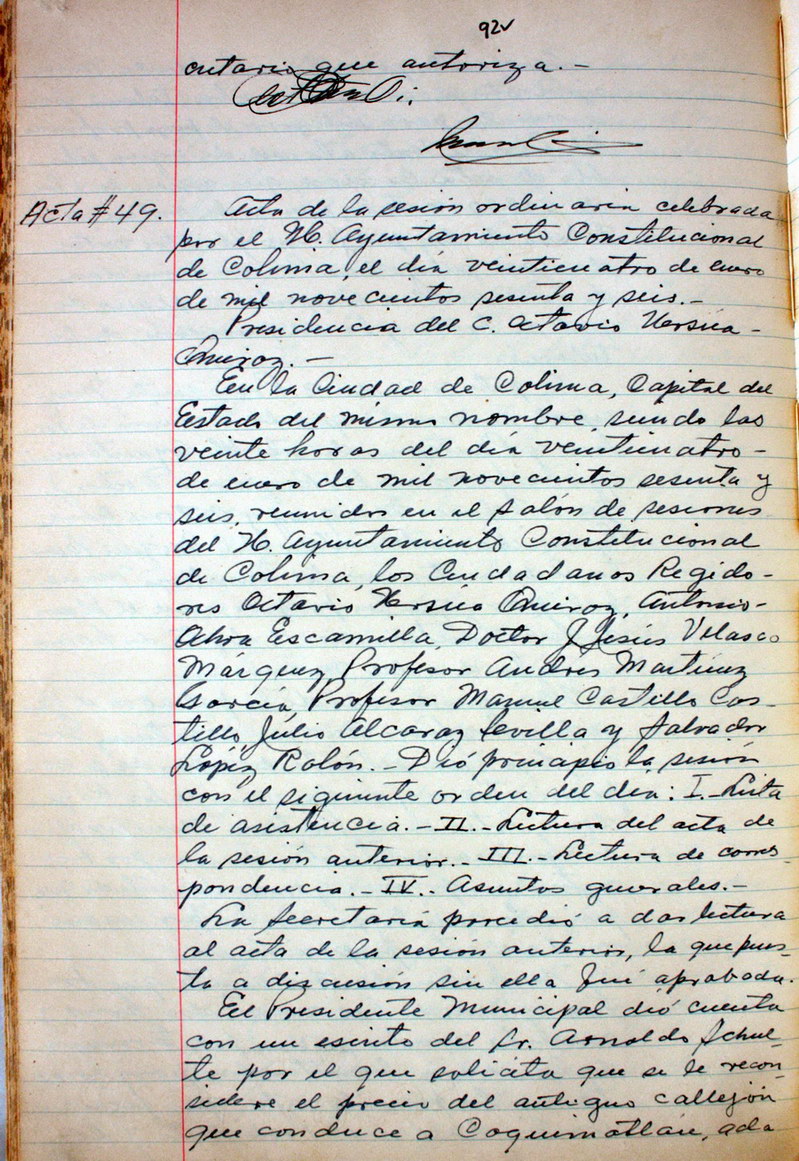 92v
cretario que autoriza.-
Acta #49.
Acta de la sesión ordinaria celebrada
por el H. Ayuntamiento Constitucional
de Colima, el día veinticuatro de enero
de mil novecientos sesenta y seis.-
Presidencia del C. Octavio Ursúa-
Quiroz.-
En la Ciudad de Colima, Capital del
Estado del mismo nombre, siendo las
veinte horas del día veinticuatro-
de enero de mil novecientos sesenta y
seis, reunidos en el salón de sesiones
del H. Ayuntamiento Constitucional
de Colima, los Ciudadanos Regido-
res Octavio Ursúa Quiroz, Antonio-
Escamilla, Doctor J. Jesús Velasco
Márquez, Profesor Andrés Martínez
García, Profesor Manuel Castillo Cas-
tillo, Julio Alcaraz Sevilla y Salvador
López Rolón.- Dió principio la sesión
con el siguiente orden del día: I.- Lista
de asistencia.- II.- Lectura del acta de
la sesión anterior.- III.- Lectura de corres-
pondencia.- IV.- Asuntos generales.-
La Secretaría procedió a dar lectura
al acta de la sesión anterior, la que pues-
ta a discusión sin ella fué aprobada.
El Presidente Municipal dió cuenta
con un escrito del Sr. Arnoldo Schul-
te por el que solicita que se le recon-
sidere el precio del antiguo callejón
que conduce a Coquimatlán, ada